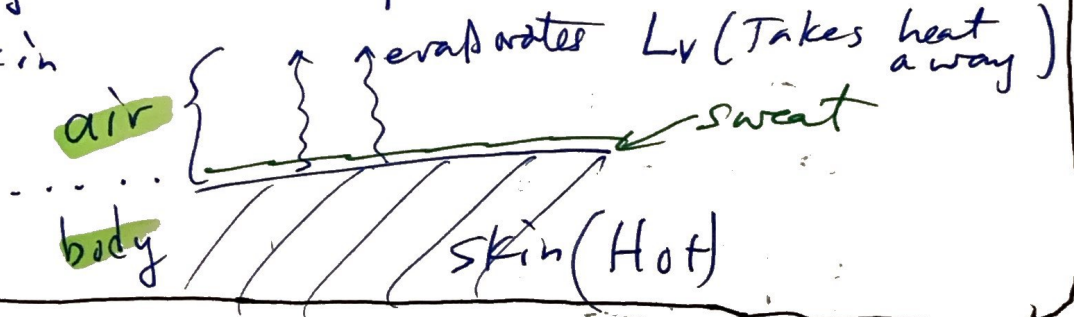 in
evaporates Lv (Takes heat
away)
air
sweat
body
skin (Hot)